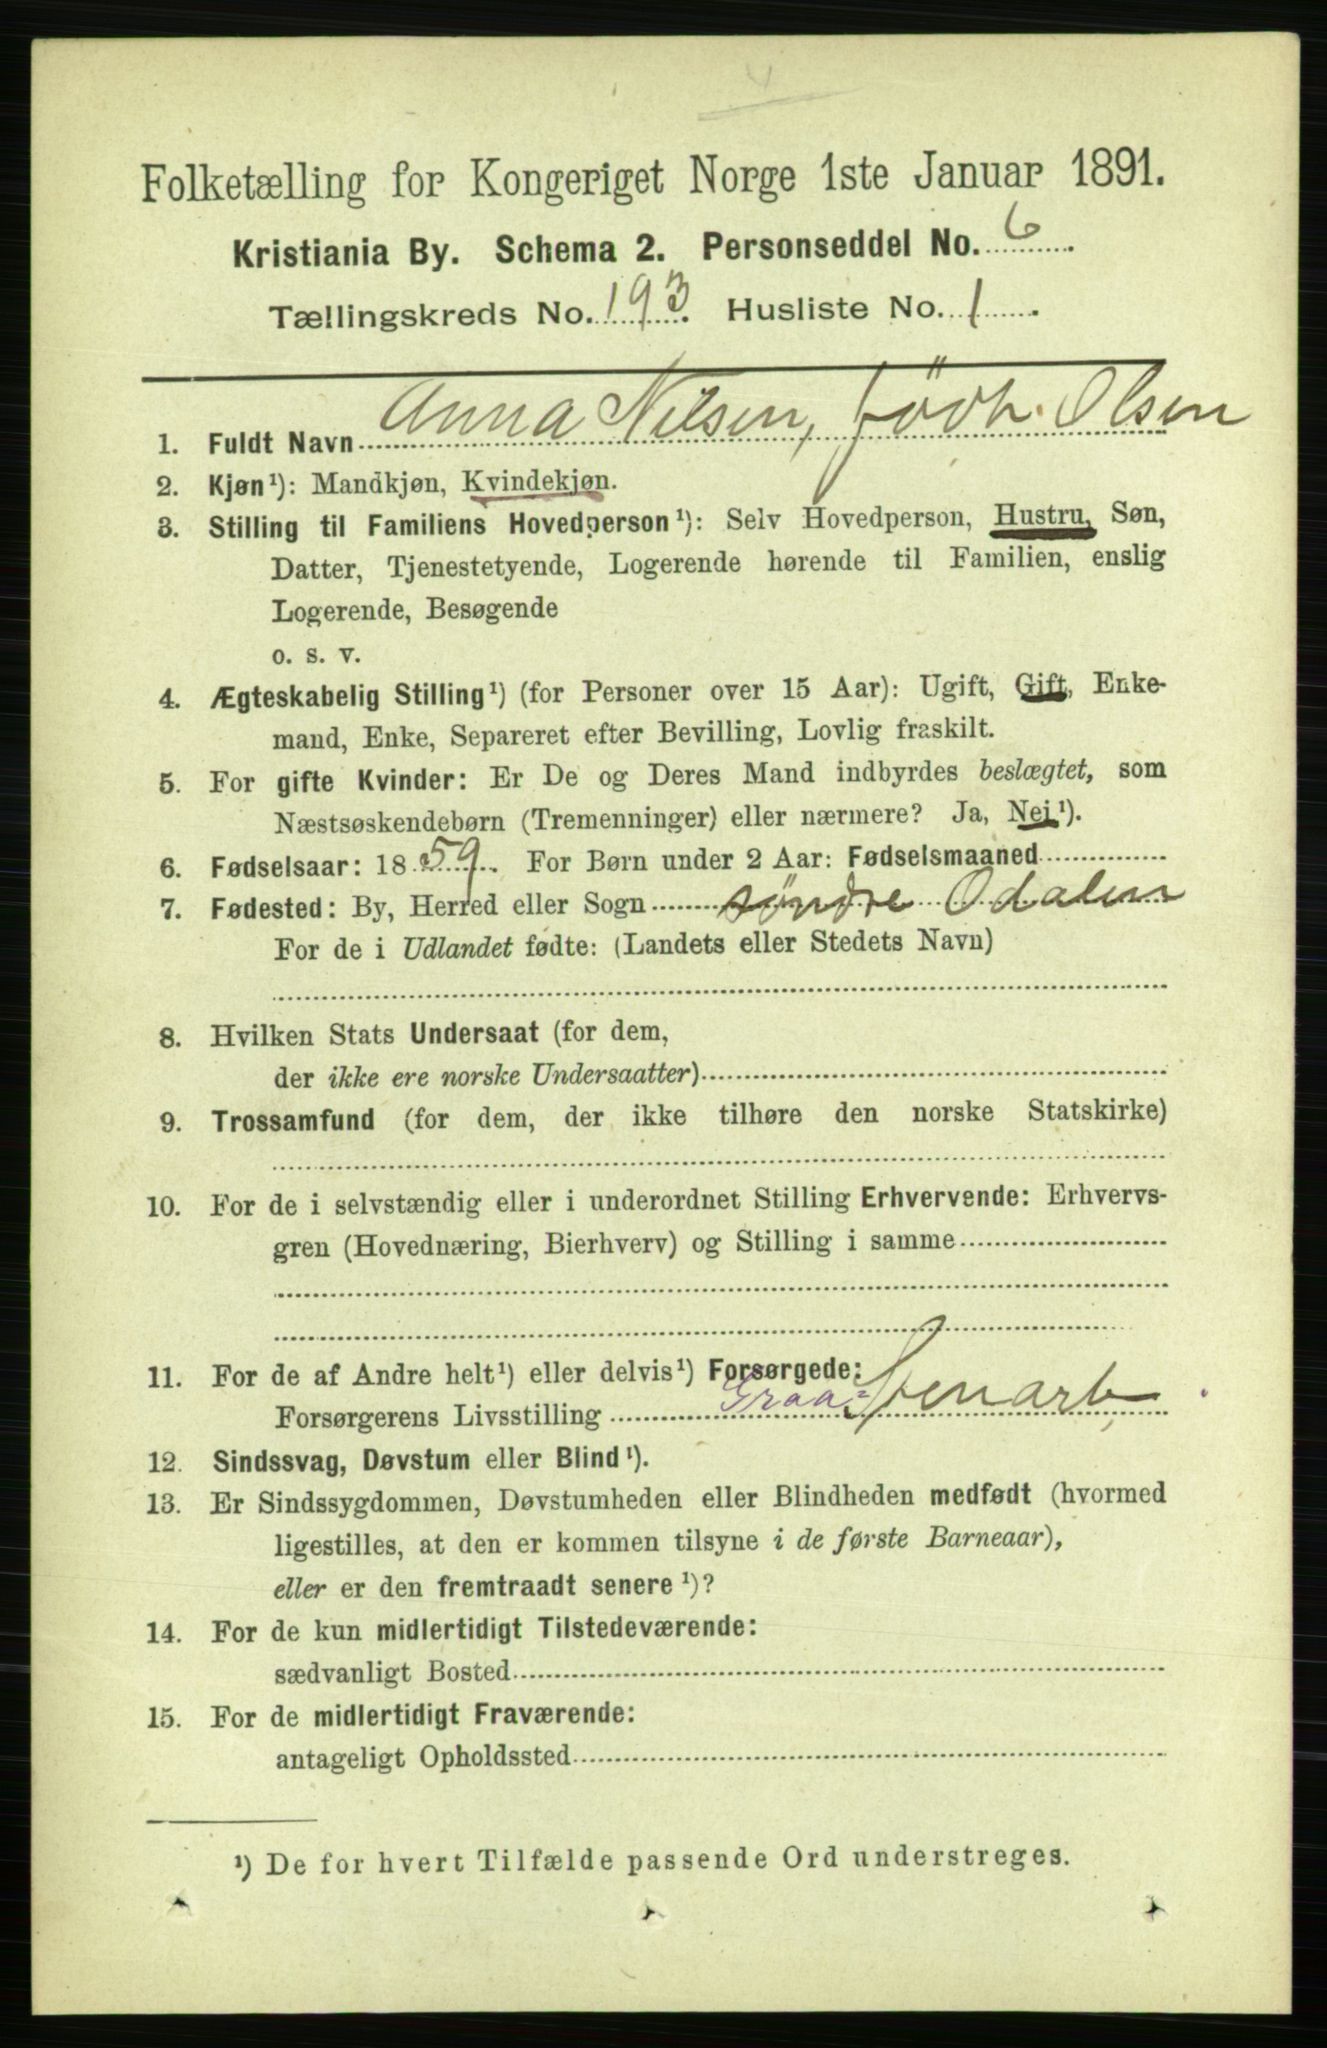 Folketælling for Kongeriget Norge 1ste Januar 1891.
Kristiania By. Schema 2. Personseddel No. 6.
Tællingskreds No. 193. Husliste No. 1.
1. Fuldt Navn Anna Nilsen, födt. Olsen
2. Kjøn¹): Mandkjøn, Kvindekjøn.
3. Stilling til Familiens Hovedperson¹): Selv Hovedperson, Hustru, Søn,
Datter, Tjenestetyende, Logerende hørende til Familien, enslig
Logerende, Besøgende
o. s. v.
4. Ægteskabelig Stilling¹) (for Personer over 15 Aar): Ugift, Gift, Enke-
mand, Enke, Separeret efter Bevilling, Lovlig fraskilt.
5. For gifte Kvinder: Er De og Deres Mand indbyrdes beslægtet, som
Næstsøskendebørn (Tremenninger) eller nærmere? Ja, Nei¹).
6. Fødselsaar: 1859. For Børn under 2 Aar: Fødselsmaaned
7. Fødested: By, Herred eller Sogn söndre Odalen
For de i Udlandet fødte: (Landets eller Stedets Navn)
8. Hvilken Stats Undersaat (for dem,
der ikke ere norske Undersaatter)
9. Trossamfund (for dem, der ikke tilhøre den norske Statskirke)
10. For de i selvstændig eller i underordnet Stilling Erhvervende: Erhvervs-
gren (Hovednæring, Bierhverv) og Stilling i samme
11. For de af Andre helt¹) eller delvis¹) Forsørgede:
Forsørgerens Livsstilling Graa=Stenarb.
12. Sindssvag, Døvstum eller Blind¹).
13. Er Sindssygdommen, Døvstumheden eller Blindheden medfødt (hvormed
ligestilles, at den er kommen tilsyne i de første Barneaar),
eller er den fremtraadt senere¹)?
14. For de kun midlertidigt Tilstedeværende:
sædvanligt Bosted
15. For de midlertidigt Fraværende:
antageligt Opholdssted
¹) De for hvert Tilfælde passende Ord understreges.